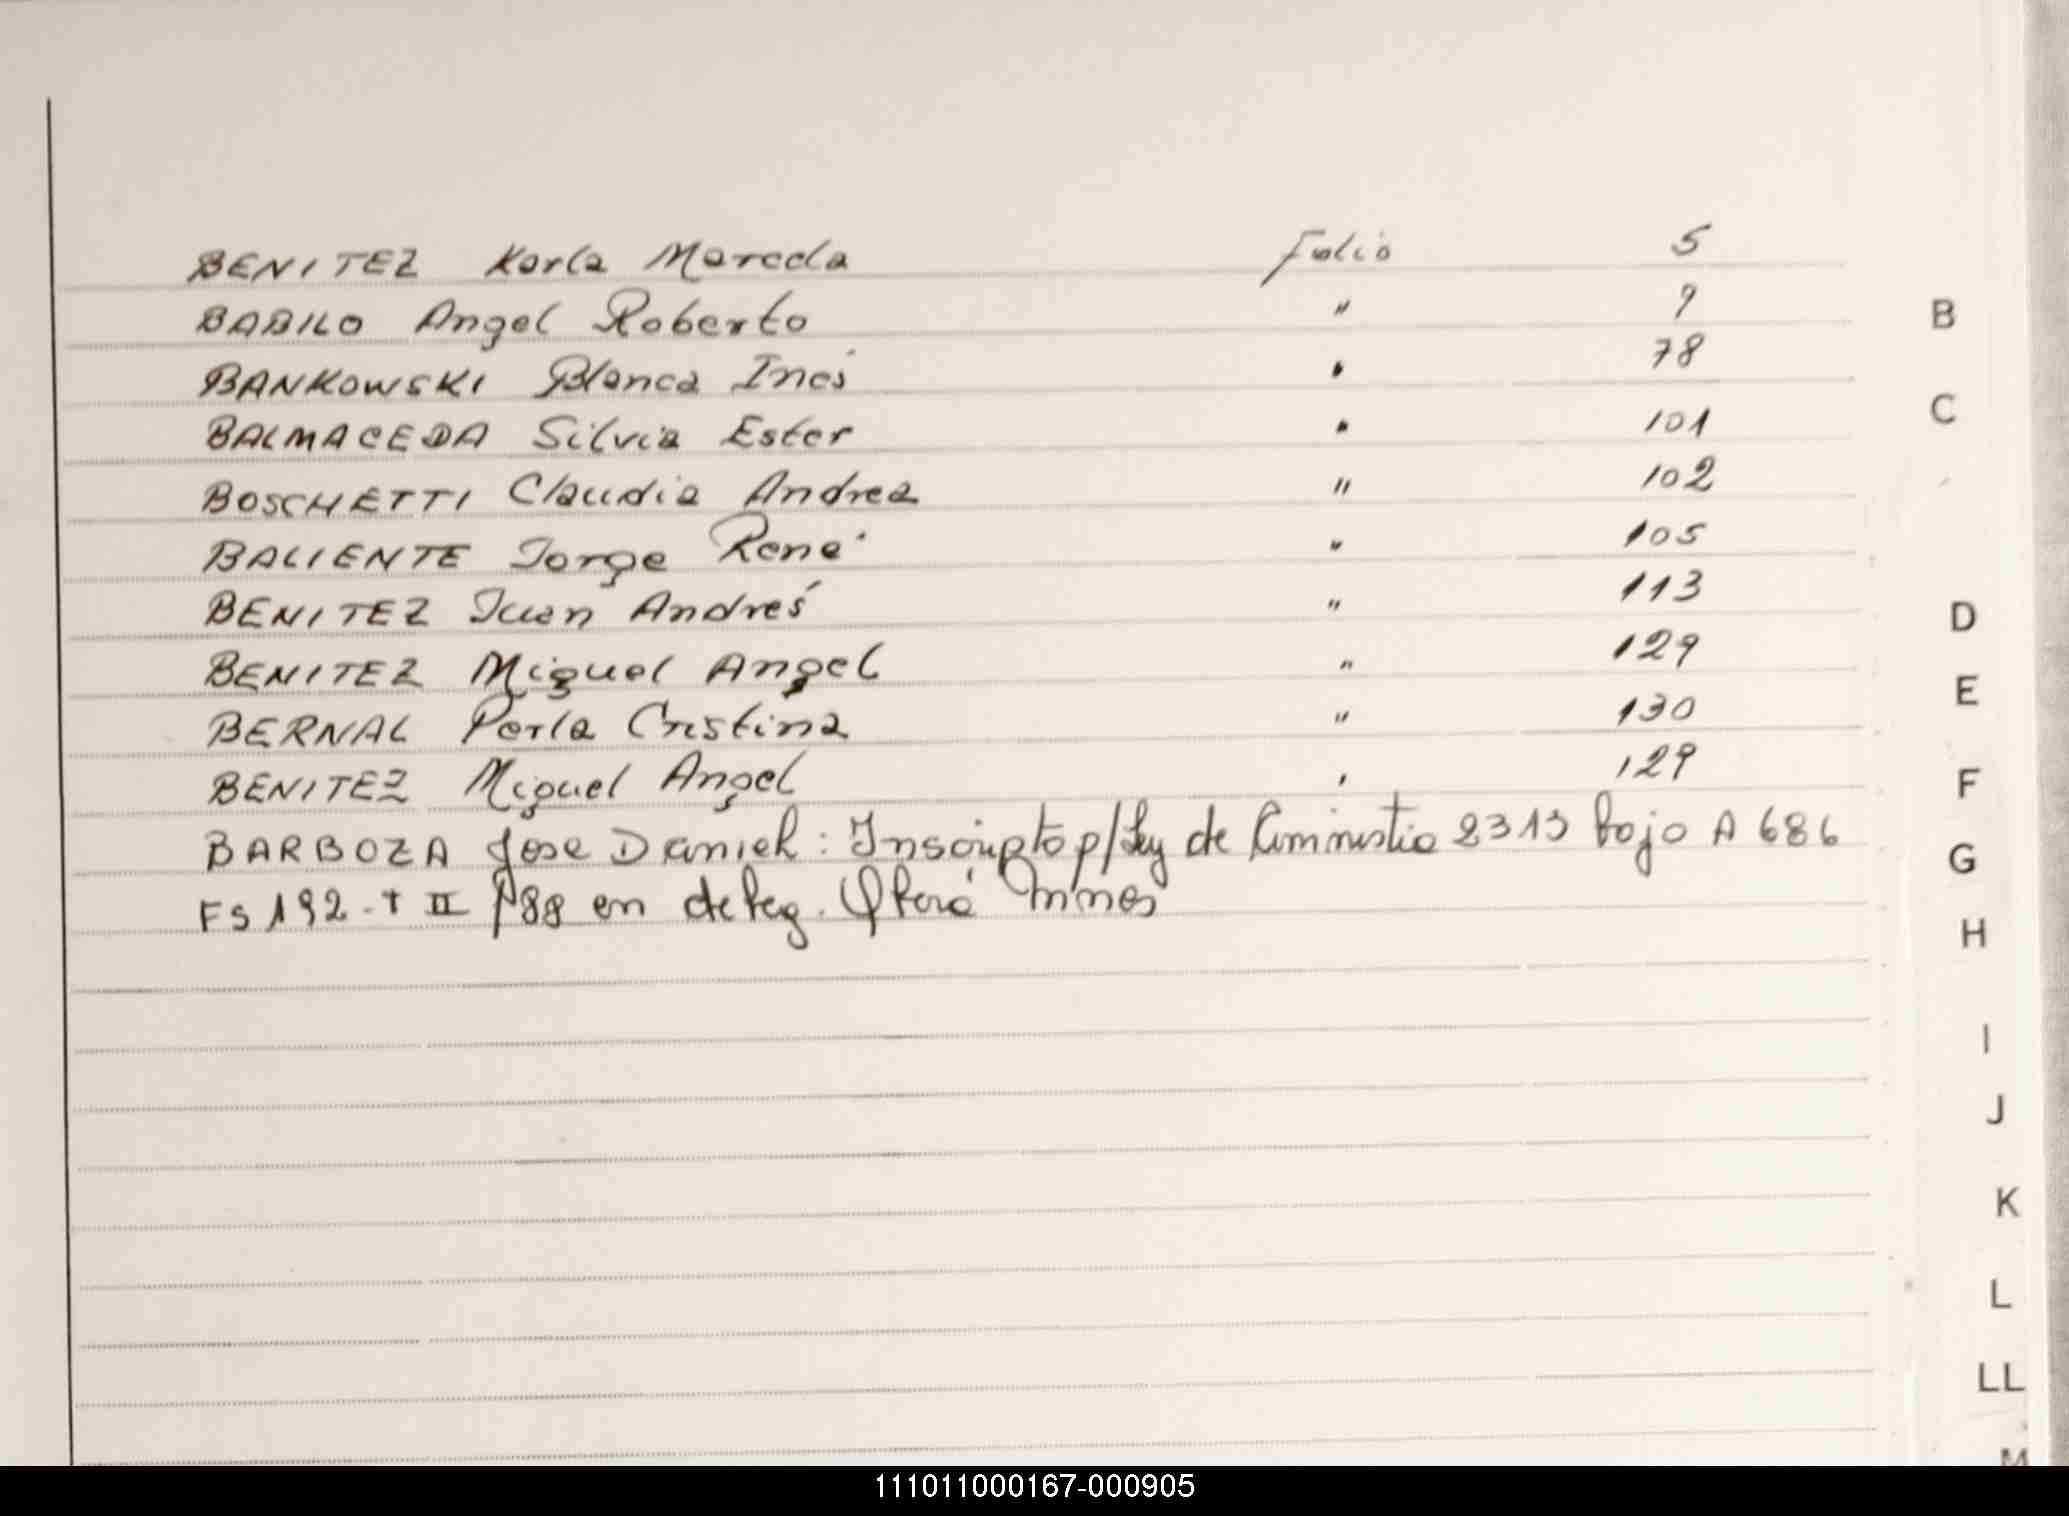 BENITEZ Karla Marcela Folio 5
BABILO Angel Roberto " 9
BANKOWSKI Blanca Inés " 78
BALMACEDA Silvia Ester " 101
BOSCHETTI Claudia Andrea " 102
BALIENTE Jorge René " 105
BENITEZ Juan Andrés " 113
BENITEZ Miguel Angel " 129
BERNAL Perla Cristina " 130
BENITEZ Miguel Angel " 129
BARBOZA Jose Daniel : Inscripto p/Ley de Aministia 2313 bajo A 686
FS 192 - t II /88 en deleg. Oberá Mnes
B
C
D
E
F
G
H
I
J
K
L
LL
M
111011000167-000905